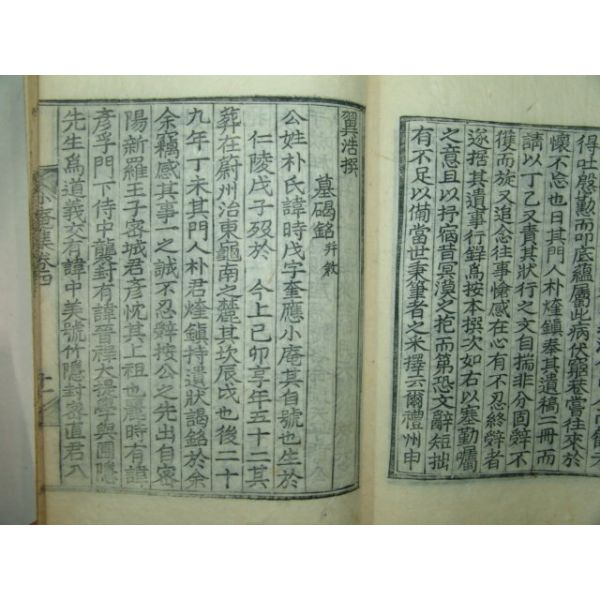 得吐慇懃而叩底蘊屬此病伏窮巷嘗往來於
懷不忘也日其門人朴煃鎭奉其遺稿一冊而
請以丁乙又責其狀行之文自揣非分固辭不
獲而旋又追念往事愴感在心有不忍終辭者
遂据其遺事行錄爲按本撰次如右以塞勤囑
之意且以抒宿昔冥漠之抱而第恐文辭短拙
有不足以備當世秉筆者之采擇云爾禮州申
翼浩撰
墓碣銘 幷敘
公姓朴氏諱時茂字奎應小庵其自號也生於
仁陵戊子歿於 今上己卯享年五十二其
葬在蔚州治東龜南之麓其坎辰戌也後二十
九年丁未其門人朴君煃鎭持遺狀謁銘於余
余竊感其事一之誠不忍辭按公之先出自密
陽新羅王子密城君彥忱其上祖也麗時有諱
彥孚門下侍中龔封有諱晉祿大提學與圃隱
先生爲道義交有諱中美號竹隱封密直君入
小庵集卷四
十一